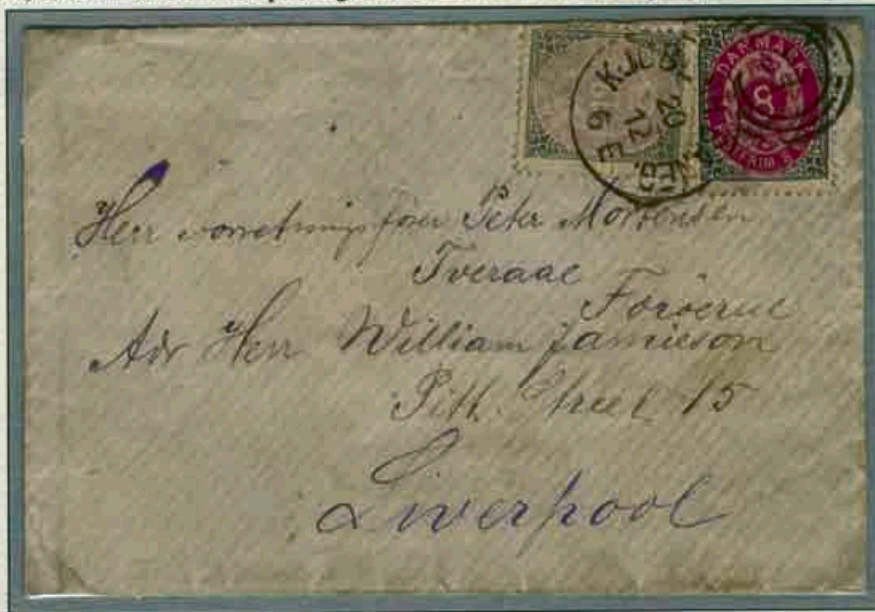 KJØB
20
12
6 E.
DANMARK
8
POSTFRIM. 8
Herr Forretningsfører Peter Mortensen
Tveraae
Færøerne
Adr Herr William Jamieson
Pitt Street 15
Liverpool